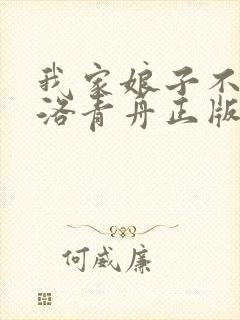 我家娘子不
洛青丹正版
何威廉